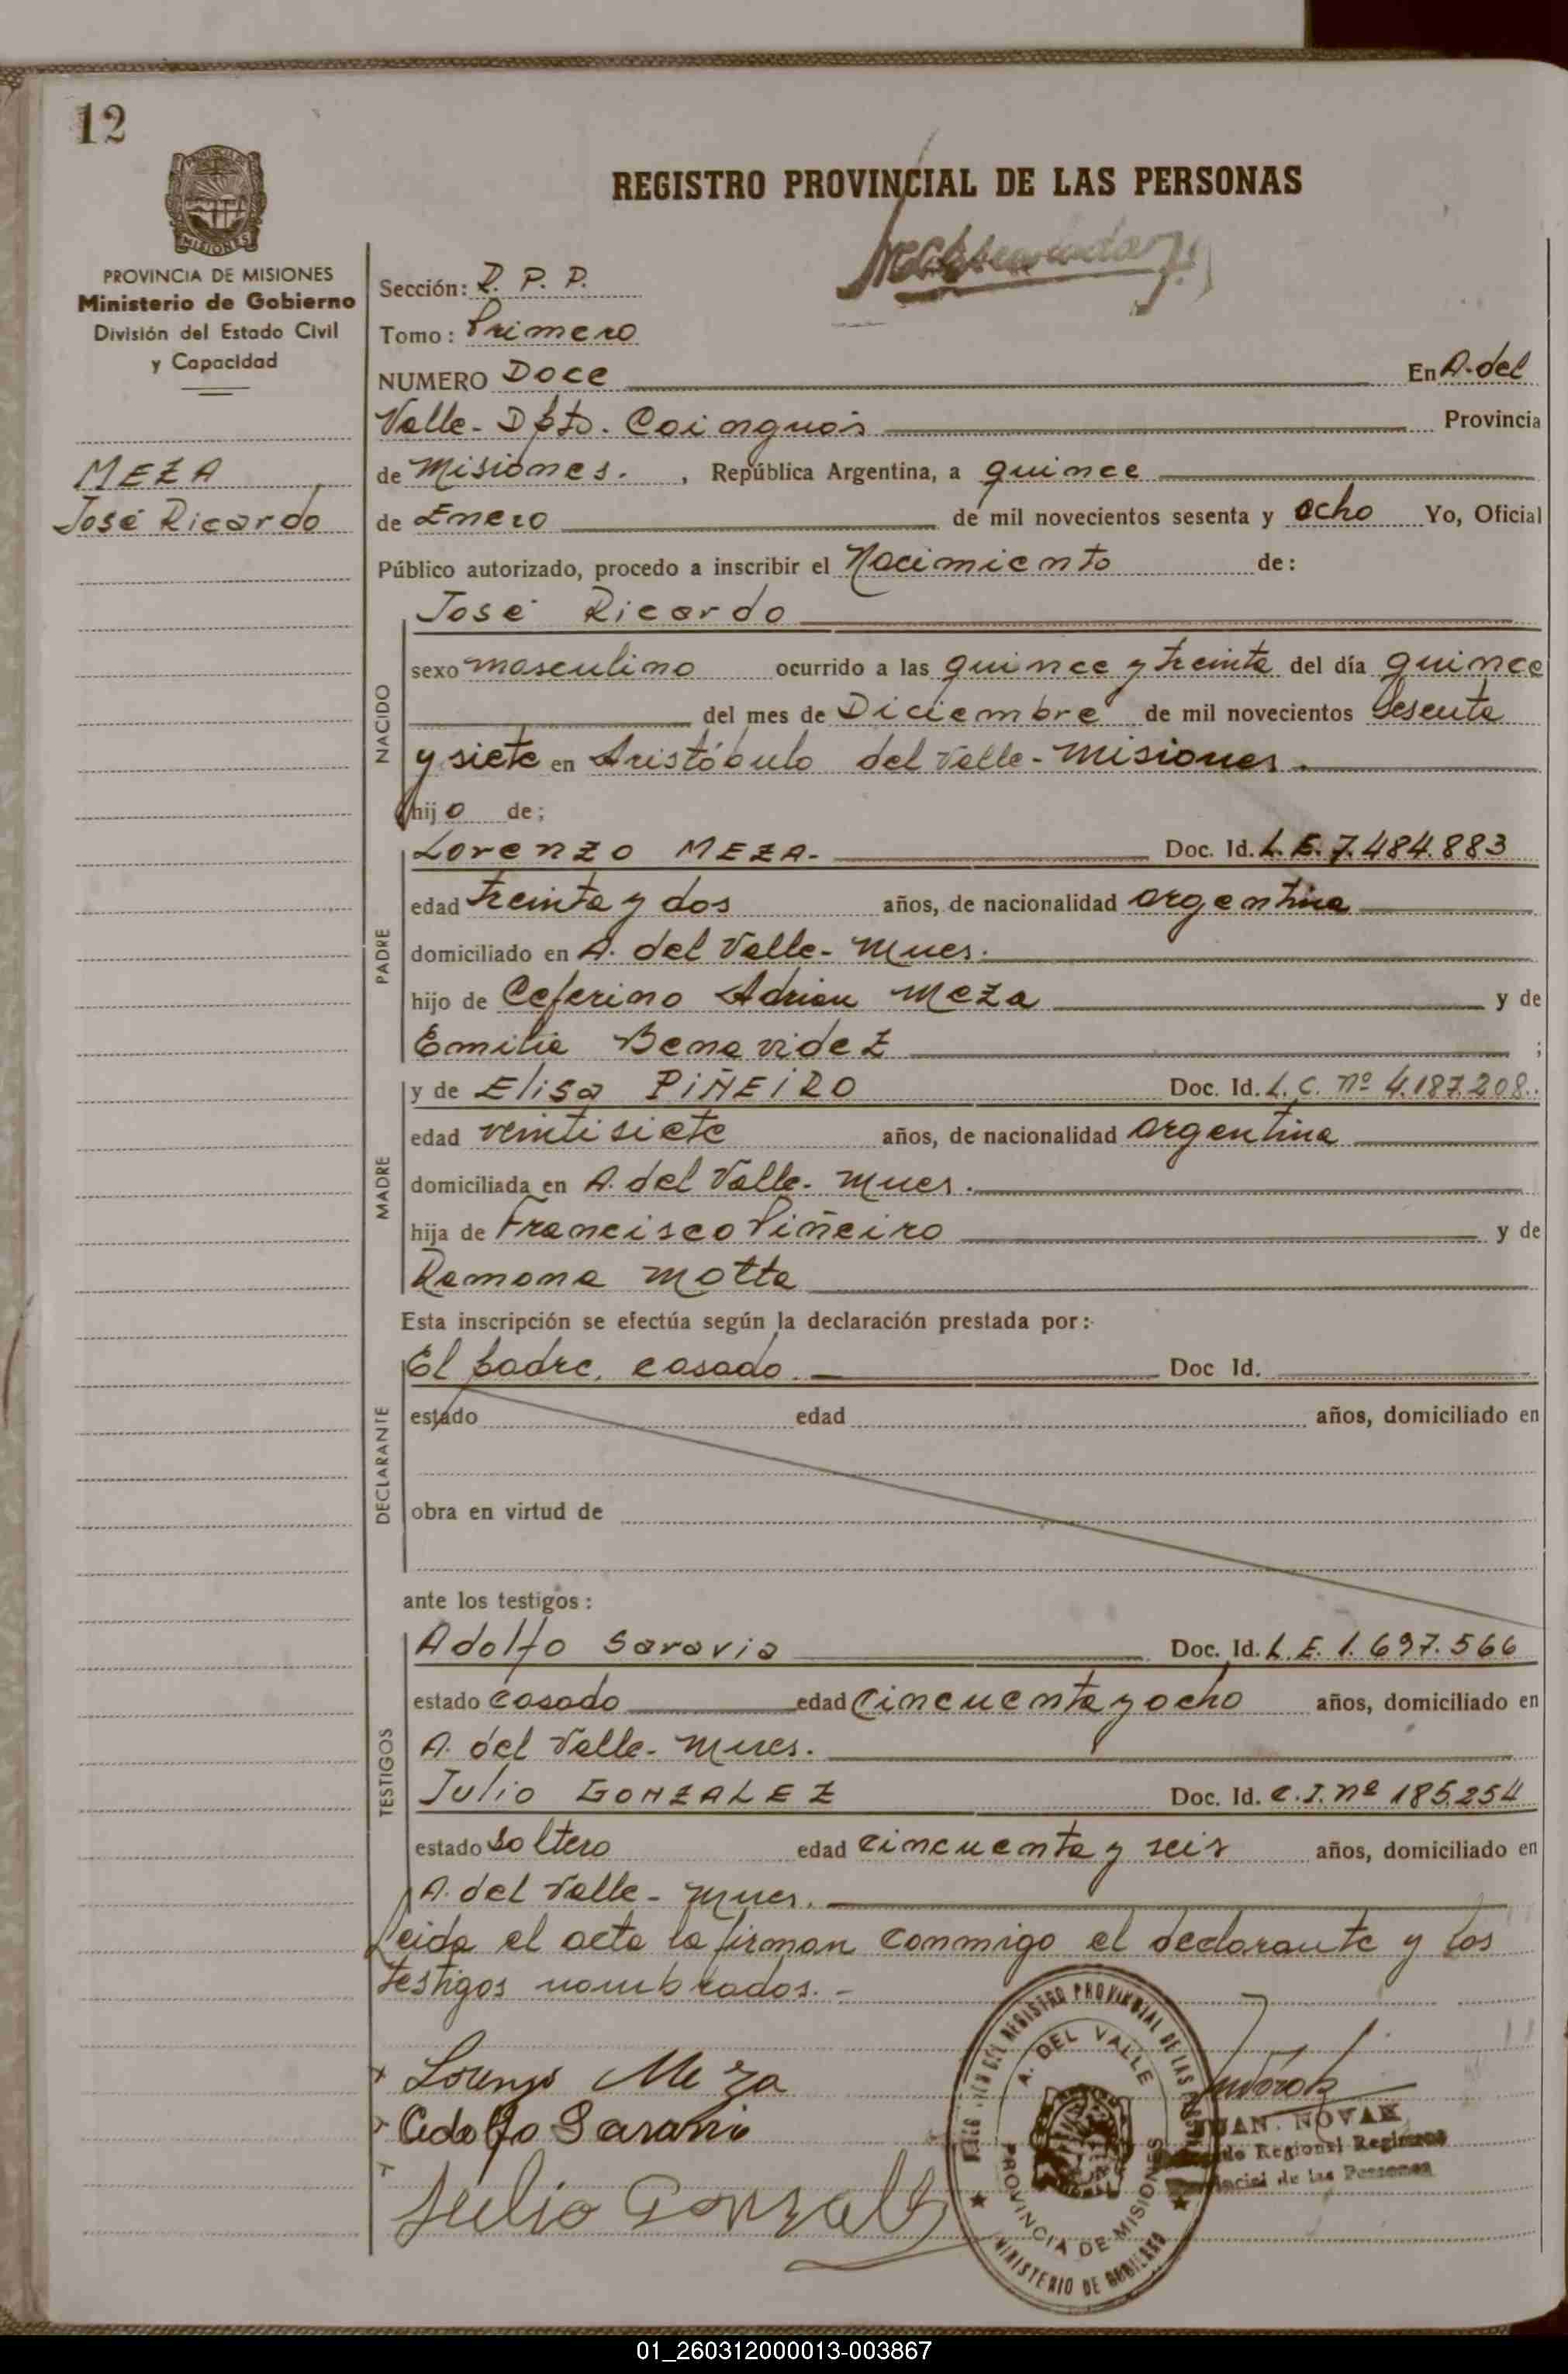 12
REGISTRO PROVINCIAL DE LAS PERSONAS
PROVINCIA DE MISIONES
Ministerio de Gobierno
División del Estado Civil
y Capacidad
MEZA
José Ricardo
Sección: R. P. P.
Tomo: Primero
NUMERO Doce En A. del
Valle - Dpto. Cainguás Provincia
de Misiones. , República Argentina, a quince
de Enero de mil novecientos sesenta y ocho Yo, Oficial
Público autorizado, procedo a inscribir el Nacimiento de:
NACIDO
José Ricardo
sexo masculino ocurrido a las quince y treinta del día quince
del mes de Diciembre de mil novecientos Sesenta
y siete en Aristóbulo del Valle - Misiones.
hijo de;
PADRE
Lorenzo MEZA- Doc. Id. L. E. 7.484.883
edad treinta y dos años, de nacionalidad argentina
domiciliado en A. del Valle - Mnes.
hijo de Ceferino Adrian Meza y de
Emilia Benavidez ;
MADRE
y de Elisa PIÑEIRO Doc. Id. L. C. nº 4.187.208.
edad veintisiete años, de nacionalidad argentina
domiciliada en A. del Valle - Mnes.
hija de Francisco Piñeiro y de
Ramona Motta
Esta inscripción se efectúa según la declaración prestada por:
DECLARANTE
El padre, casado. Doc Id.
estado edad años, domiciliado en
obra en virtud de
ante los testigos:
TESTIGOS
Adolfo Saravia Doc. Id. L. E. 1.697.566
estado casado edad Cincuenta y ocho años, domiciliado en
A. del Valle - Mnes.
Julio GONZALEZ Doc. Id. C. I. nº 185.254
estado Soltero edad cincuenta y seis años, domiciliado en
A. del Valle - Mnes.
Leida el acta la firman conmigo el declarante y los
testigos nombrados. -
Lorenzo Meza
Adolfo Saravia
Julio Gonzalez
REGISTRO PROVINCIAL DE LAS
A. DEL VALLE
PROVINCIA DE MISIONES
MINISTERIO DE GOBIERNO
JUAN NOVAK
Regional Registro
de las Personas
01_260312000013-003867